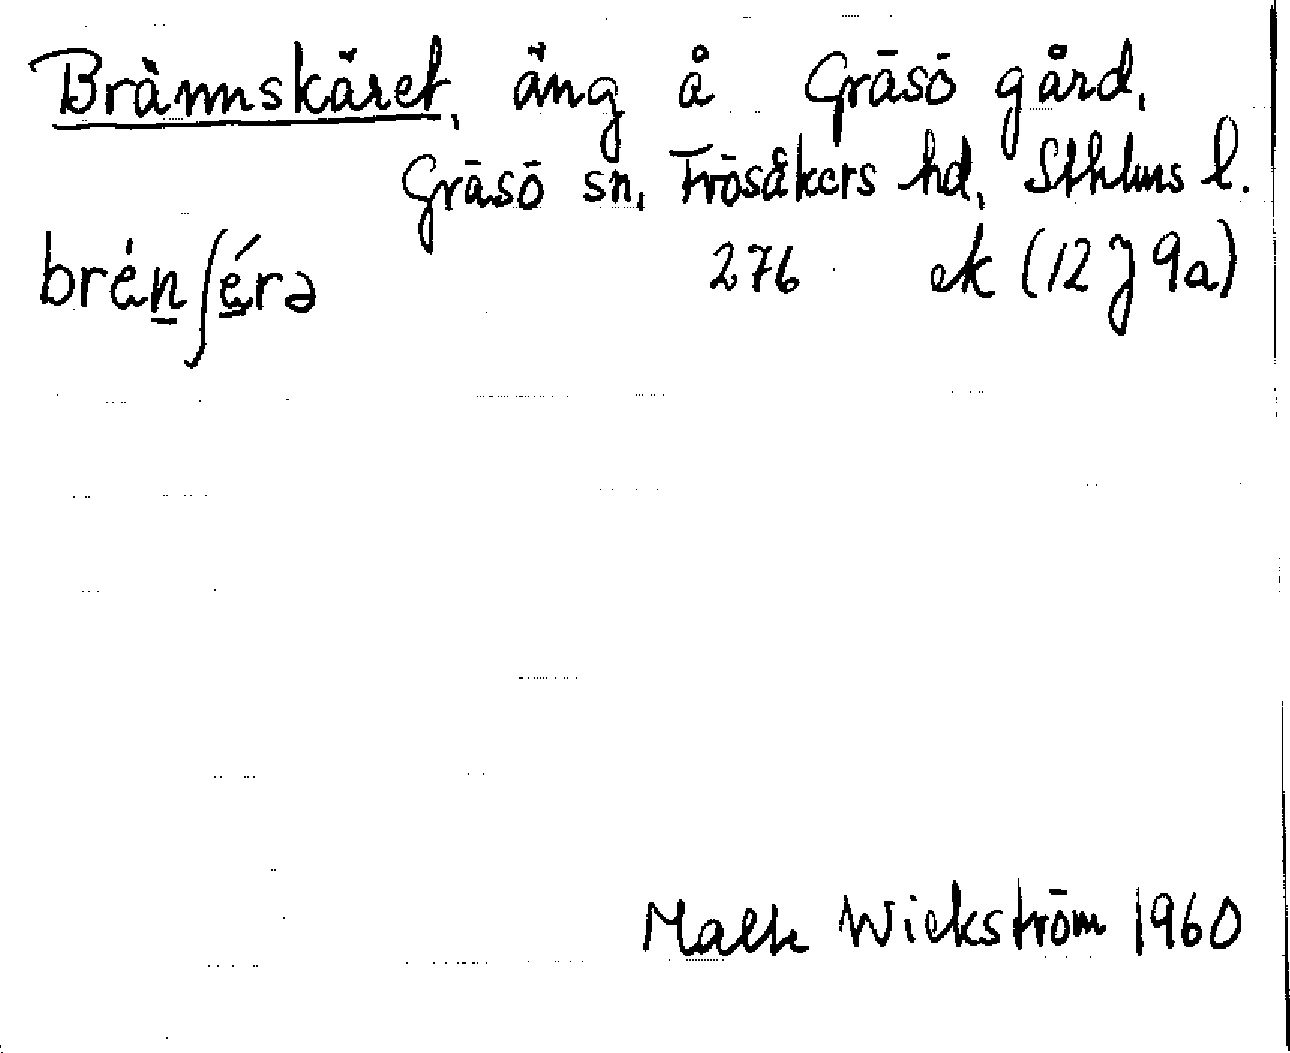 Brännskäret, äng å Gräsö gård,
Gräsö sn, Frösåkers hd, Sthlms l.
brén̲ʃé̲rə 276 ek (12 J 9a)
Malte Wickström 1960